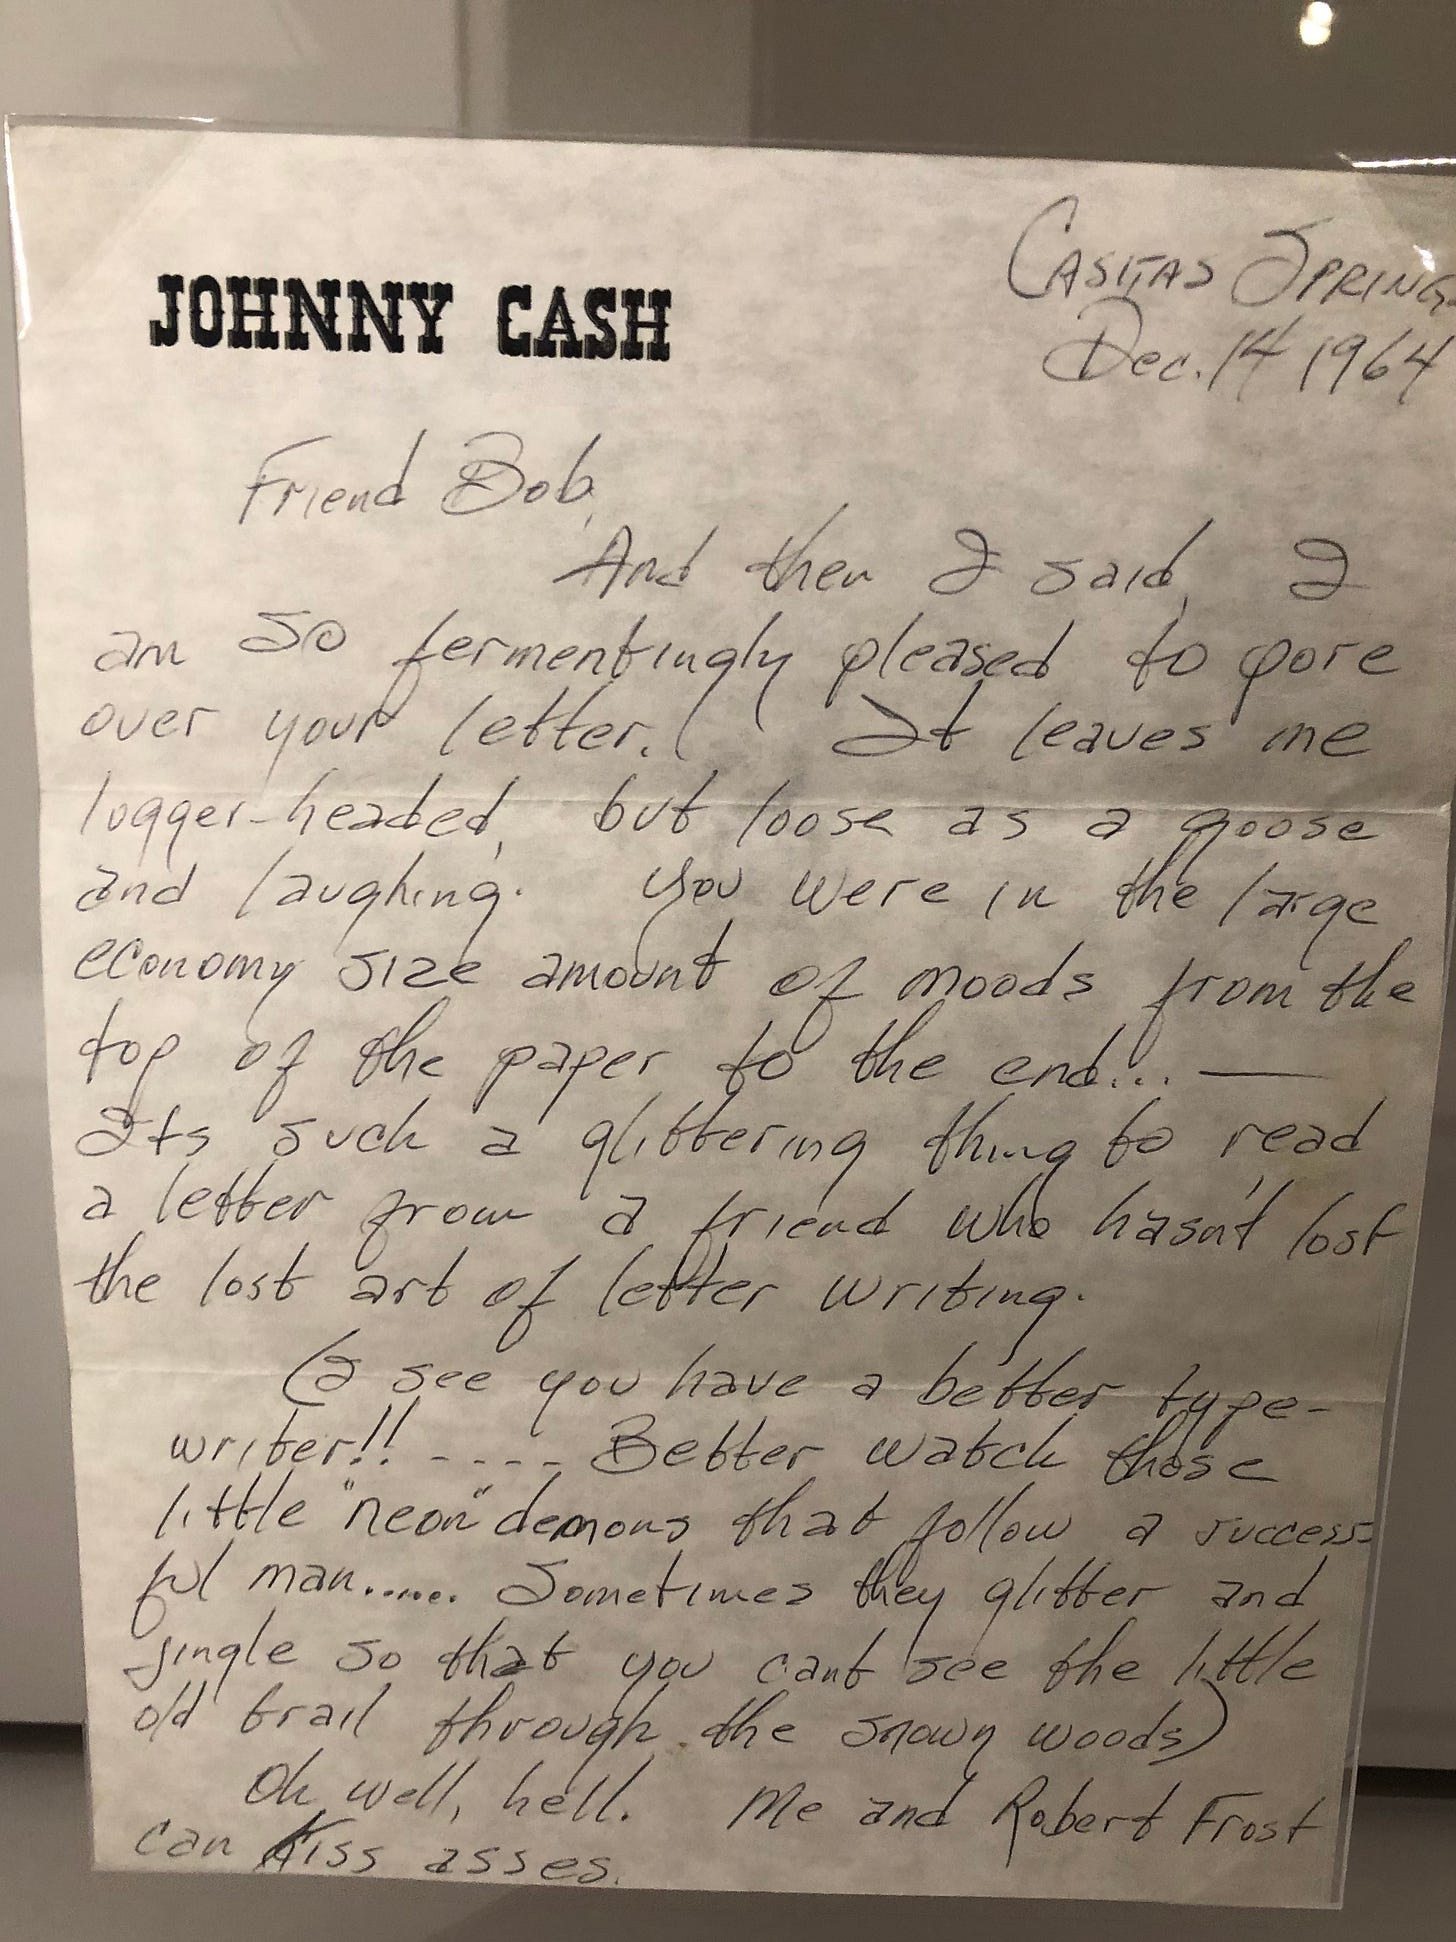 JOHNNY CASH
CASITAS SPRING
Dec. 14 1964
Friend Bob,
And then I said, I
am so fermentingly pleased to pore
over your letter. It leaves me
logger-headed, but loose as a goose
and laughing. You were in the large
economy size amount of moods from the
top of the paper to the end... —
Its such a glittering thing to read
a letter from a friend who hasn't lost
the lost art of letter writing.
(I see you have a better type-
writer!! ---- Better watch those
little "neon" demons that follow a success-
ful man...... Sometimes they glitter and
jingle so that you cant see the little
old trail through the snowy woods)
Oh well, hell. Me and Robert Frost
can kiss asses.